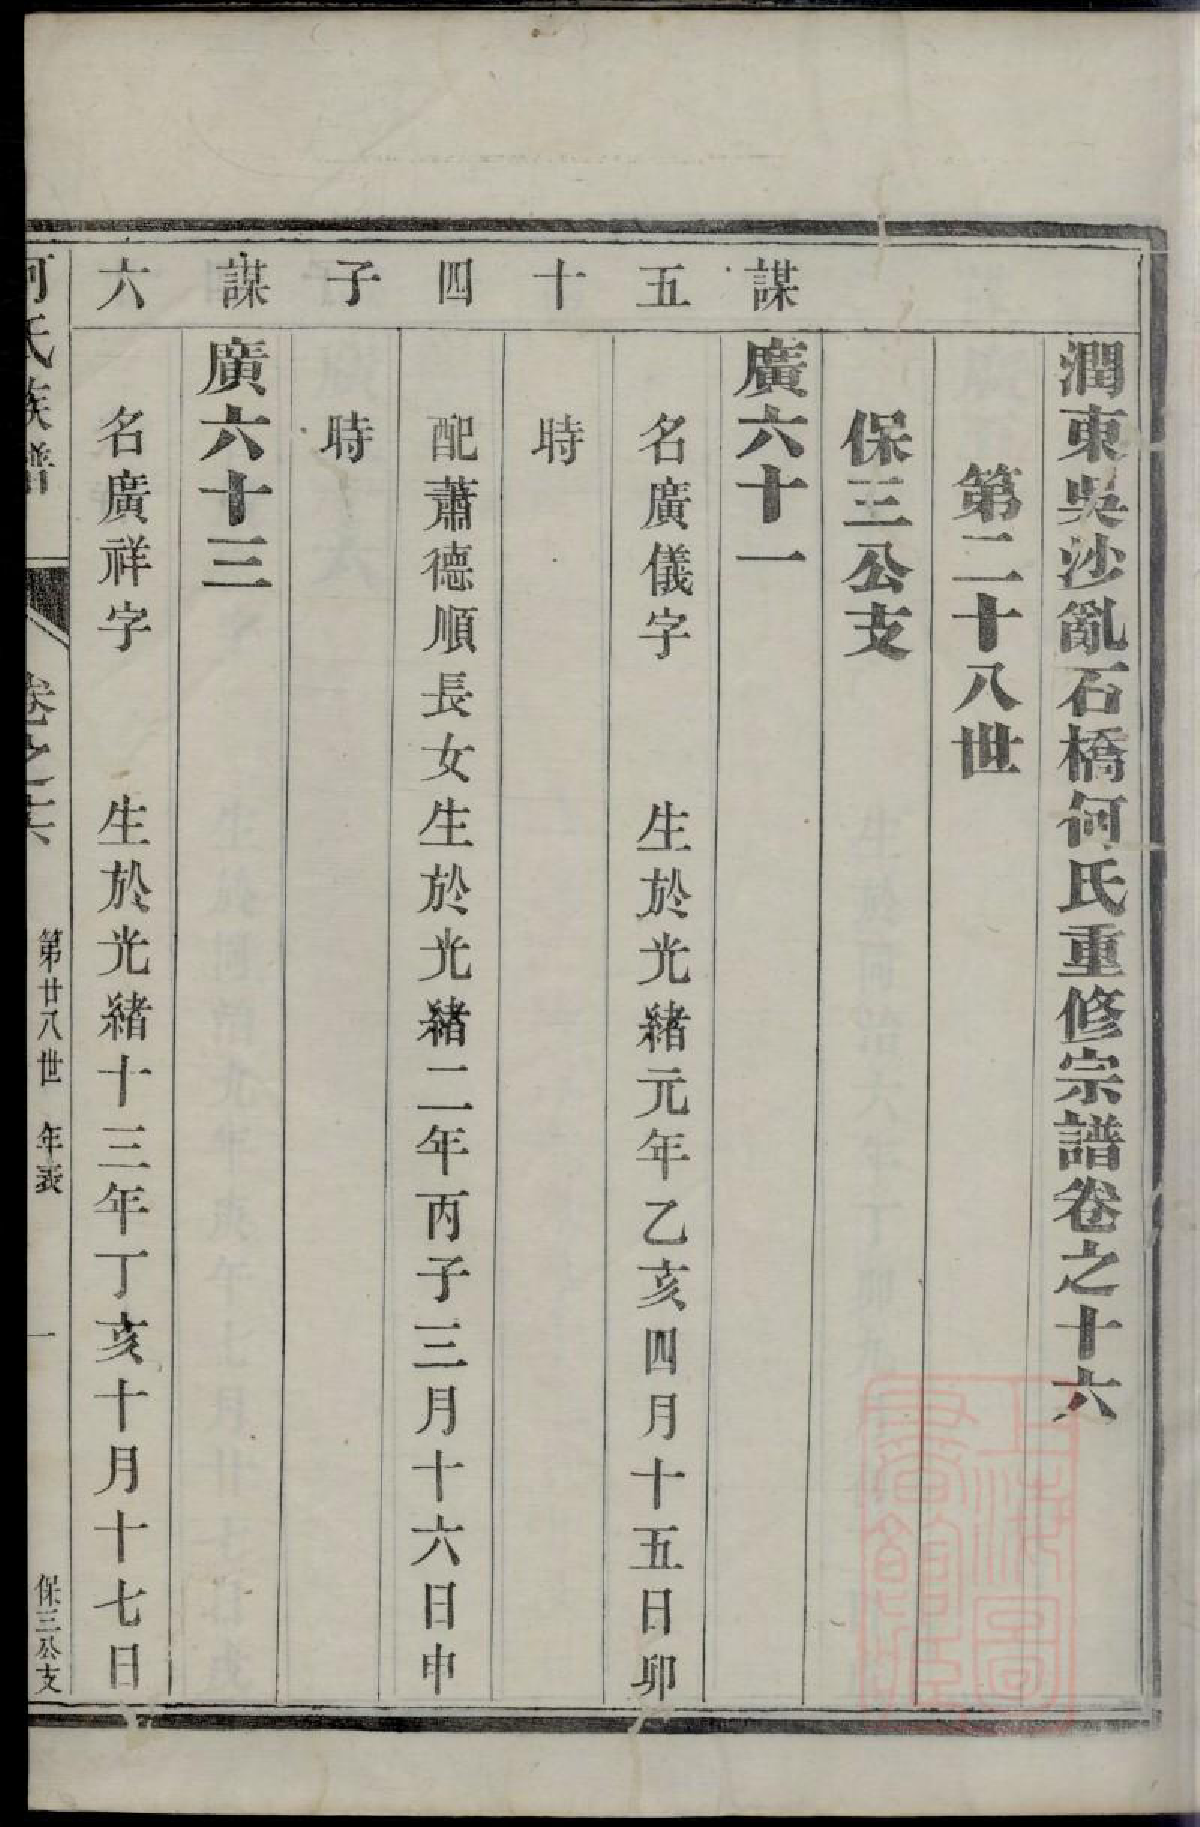 潤東吳沙亂石橋何氏重修宗譜卷之十六
第二十八世
保三公支
謀
廣六十一
五
名廣儀字 生於光緒元年乙亥四月十五日卯
十
時
四
配蕭德順長女生於光緒二年丙子三月十六日申
子
時
謀
廣六十三
六
名廣祥字 生於光緒十三年丁亥十月十七日
何氏族譜 卷之十六 第廿八世 年表 一 保三公支
上海圖書館藏